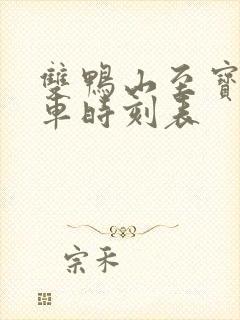 雙鴨山至寶
車時刻表
宗禾